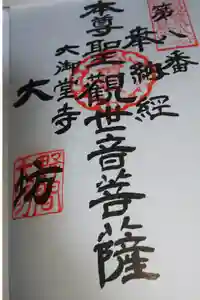 第八番
奉納経
本尊聖觀世音菩薩
大御堂寺
大坊